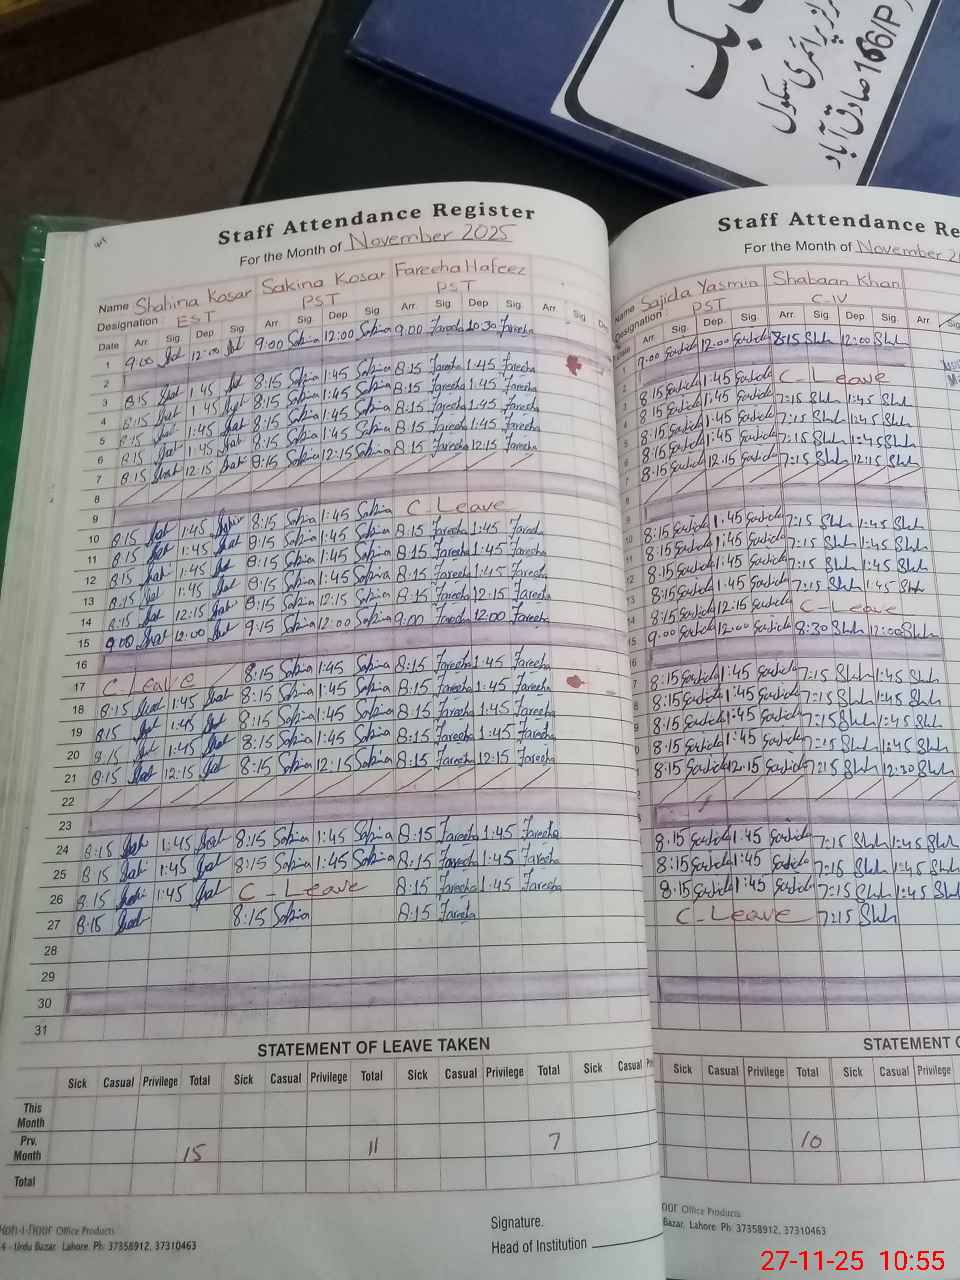 بک
پرائمری سکول
166/P صادق آباد
Staff Attendance Register
For the Month of November 2025
Name Shahina Kosar Sakina Kosar Fareeha Hafeez
Designation EST PST PST
Date Arr. Sig. Dep Sig. Arr. Sig. Dep Sig. Arr. Sig. Dep Sig. Arr. Sig. Dep
1 9:00 12:00 9:00 Sakina 12:00 Sakina 9:00 Fareeha 10:30 Fareeha
2
3 8:15 1:45 8:15 Sakina 1:45 Sakina 8:15 Fareeha 1:45 Fareeha
4 8:15 1:45 8:15 Sakina 1:45 Sakina 8:15 Fareeha 1:45 Fareeha
5 8:15 1:45 8:15 Sakina 1:45 Sakina 8:15 Fareeha 1:45 Fareeha
6 8:15 1:45 8:15 Sakina 1:45 Sakina 8:15 Fareeha 1:45 Fareeha
7 8:15 12:15 8:15 Sakina 12:15 Sakina 8:15 Fareeha 12:15 Fareeha
8
9
10 8:15 1:45 8:15 Sakina 1:45 Sakina C. Leave
11 8:15 1:45 8:15 Sakina 1:45 Sakina 8:15 Fareeha 1:45 Fareeha
12 8:15 1:45 8:15 Sakina 1:45 Sakina 8:15 Fareeha 1:45 Fareeha
13 8:15 1:45 8:15 Sakina 1:45 Sakina 8:15 Fareeha 1:45 Fareeha
14 8:15 12:15 8:15 Sakina 12:15 Sakina 8:15 Fareeha 12:15 Fareeha
15 9:00 12:00 9:15 Sakina 12:00 Sakina 9:00 Fareeha 12:00 Fareeha
16
17 C Leave 8:15 Sakina 1:45 Sakina 8:15 Fareeha 1:45 Fareeha
18 8:15 1:45 8:15 Sakina 1:45 Sakina 8:15 Fareeha 1:45 Fareeha
19 8:15 1:45 8:15 Sakina 1:45 Sakina 8:15 Fareeha 1:45 Fareeha
20 8:15 1:45 8:15 Sakina 1:45 Sakina 8:15 Fareeha 1:45 Fareeha
21 8:15 12:15 8:15 Sakina 12:15 Sakina 8:15 Fareeha 12:15 Fareeha
22
23
24 8:15 1:45 8:15 Sakina 1:45 Sakina 8:15 Fareeha 1:45 Fareeha
25 8:15 1:45 8:15 Sakina 1:45 Sakina 8:15 Fareeha 1:45 Fareeha
26 8:15 1:45 C - Leave 8:15 Fareeha 1:45 Fareeha
27 8:15 8:15 Sakina 8:15 Fareeha
28
29
30
31
STATEMENT OF LEAVE TAKEN
Sick Casual Privilege Total Sick Casual Privilege Total Sick Casual Privilege Total Sick Casual
This Month
Prv. Month 15 11 7
Total
Office Products
Urdu Bazar, Lahore. Ph: 37358912, 37310463
Signature.
Head of Institution
Staff Attendance Re
For the Month of November 20
Name Sajida Yasmin Shabaan Khan
Designation PST C-IV
Arr. Sig. Dep. Sig. Arr. Sig. Dep Sig.
9:00 Sajida 12:00 Sajida 8:15 Shb 12:00 Shb
8:15 Sajida 1:45 Sajida C - Leave
8:15 Sajida 1:45 Sajida 7:15 Shb 1:45 Shb
8:15 Sajida 1:45 Sajida 7:15 Shb 1:45 Shb
8:15 Sajida 1:45 Sajida 7:15 Shb 1:45 Shb
8:15 Sajida 12:15 Sajida 7:15 Shb 12:15 Shb
8:15 Sajida 1:45 Sajida 7:15 Shb 1:45 Shb
8:15 Sajida 1:45 Sajida 7:15 Shb 1:45 Shb
8:15 Sajida 1:45 Sajida 7:15 Shb 1:45 Shb
8:15 Sajida 1:45 Sajida 7:15 Shb 1:45 Shb
8:15 Sajida 12:15 Sajida C - Leave
9:00 Sajida 12:00 Sajida 8:30 Shb 12:00 Shb
8:15 Sajida 1:45 Sajida 7:15 Shb 1:45 Shb
8:15 Sajida 1:45 Sajida 7:15 Shb 1:45 Shb
8:15 Sajida 1:45 Sajida 7:15 Shb 1:45 Shb
8:15 Sajida 1:45 Sajida 7:15 Shb 1:45 Shb
8:15 Sajida 12:15 Sajida 7:15 Shb 12:30 Shb
8:15 Sajida 1:45 Sajida 7:15 Shb 1:45 Shb
8:15 Sajida 1:45 Sajida 7:15 Shb 1:45 Shb
8:15 Sajida 1:45 Sajida 7:15 Shb 1:45 Shb
C - Leave 7:15 Shb
STATEMENT O
Sick Casual Privilege Total Sick Casual Privilege
10
Office Products
Bazar, Lahore. Ph: 37358912, 37310463
27-11-25 10:55